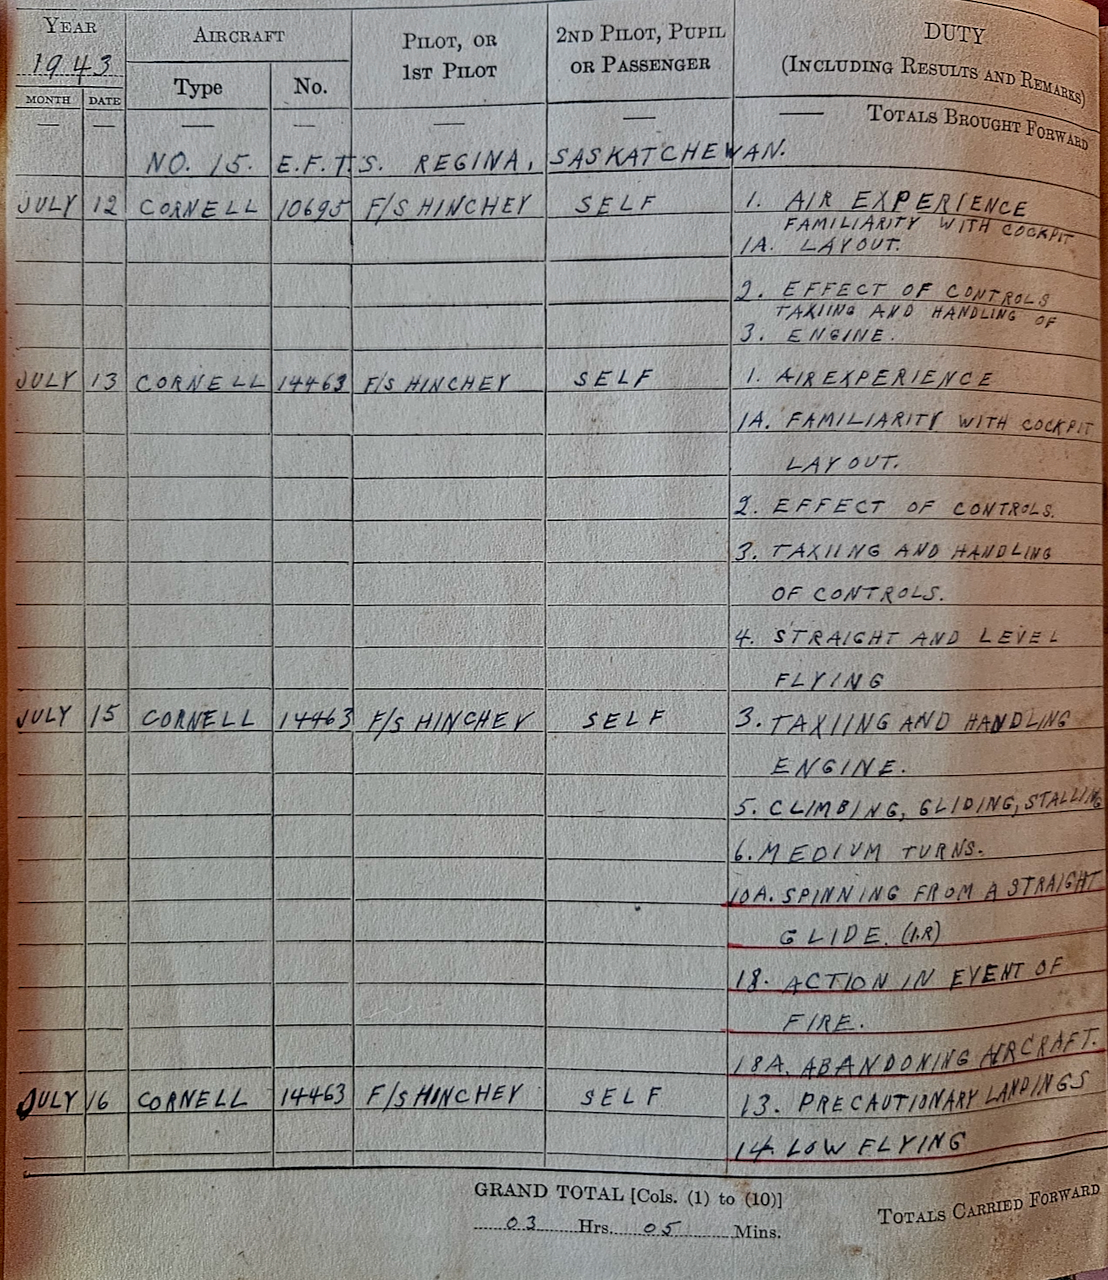 YEAR
1943
AIRCRAFT
PILOT, OR
1ST PILOT
2ND PILOT, PUPIL
OR PASSENGER
DUTY
(INCLUDING RESULTS AND REMARKS)
MONTH DATE Type No.
— — — — — — — TOTALS BROUGHT FORWARD
NO. 15. E.F.T.S. REGINA, SASKATCHEWAN.
JULY 12 CORNELL 10695 F/S HINCHEY SELF 1. AIR EXPERIENCE
FAMILIARITY WITH COCKPIT
1A. LAYOUT.
2. EFFECT OF CONTROLS
TAXIING AND HANDLING OF
3. ENGINE.
JULY 13 CORNELL 14463 F/S HINCHEY SELF 1. AIR EXPERIENCE
1A. FAMILIARITY WITH COCKPIT
LAYOUT.
2. EFFECT OF CONTROLS.
3. TAXIING AND HANDLING
OF CONTROLS.
4. STRAIGHT AND LEVEL
FLYING
JULY 15 CORNELL 14463 F/S HINCHEY SELF 3. TAXIING AND HANDLING
ENGINE.
5. CLIMBING, GLIDING, STALLING
6. MEDIUM TURNS.
10A. SPINNING FROM A STRAIGHT
GLIDE. (1.R)
18. ACTION IN EVENT OF
FIRE.
18A. ABANDONING AIRCRAFT.
JULY 16 CORNELL 14463 F/S HINCHEY SELF 13. PRECAUTIONARY LANDINGS
14. LOW FLYING
GRAND TOTAL [Cols. (1) to (10)]
03 Hrs. 05 Mins.
TOTALS CARRIED FORWARD